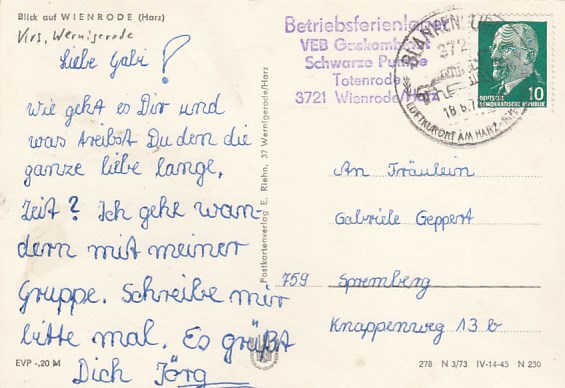 Blick auf WIENRODE (Harz)
Krs. Wernigerode
Liebe Gabi!
wie geht es Dir und
was treibst Du den die
ganze liebe lange,
Zeit? Ich gehe wan-
dern mit meiner
Gruppe. Schreibe mir
bitte mal. Es grüßt
Dich Jörg
EVP -,20 M
Postkartenverlag E. Riehn, 37 Wernigerode/Harz
Betriebsferienlager
VEB Gaskombinat
Schwarze Pumpe
Totenrode
3721 Wienrode/Harz
BLANKENBURG
372
18.6.7
LUFTKURORT AM HARZ
10
DEUTSCHE
DEMOKRATISCHE REPUBLIK
An Fräulein
Gabriele Geppert
759 Spremberg
Knappenweg 13 b
278 N 3/73 IV-14-45 N 230